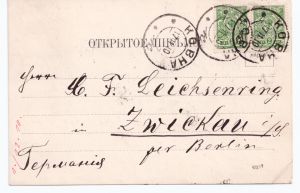 КОВНА
КОВНА
ОТКРЫТОЕ ПИСЬМО
Herrn
C. F. Leichsenring
in Zwickau i/S
per Berlin
Германия